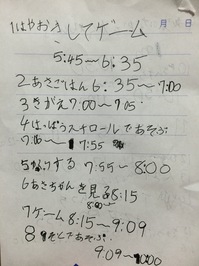 月 日
1はやおきしてゲーム
5:45〜6:35
2あさごはん 6:35〜7:00
3きがえ7:00〜7:05
4はっぽうスチロールであそぶ
7:55
する 7:55〜8:00
6あさちゃんを見る8:15
7ゲーム8:15〜9:09
8そとであそぶ
9:09〜10:00